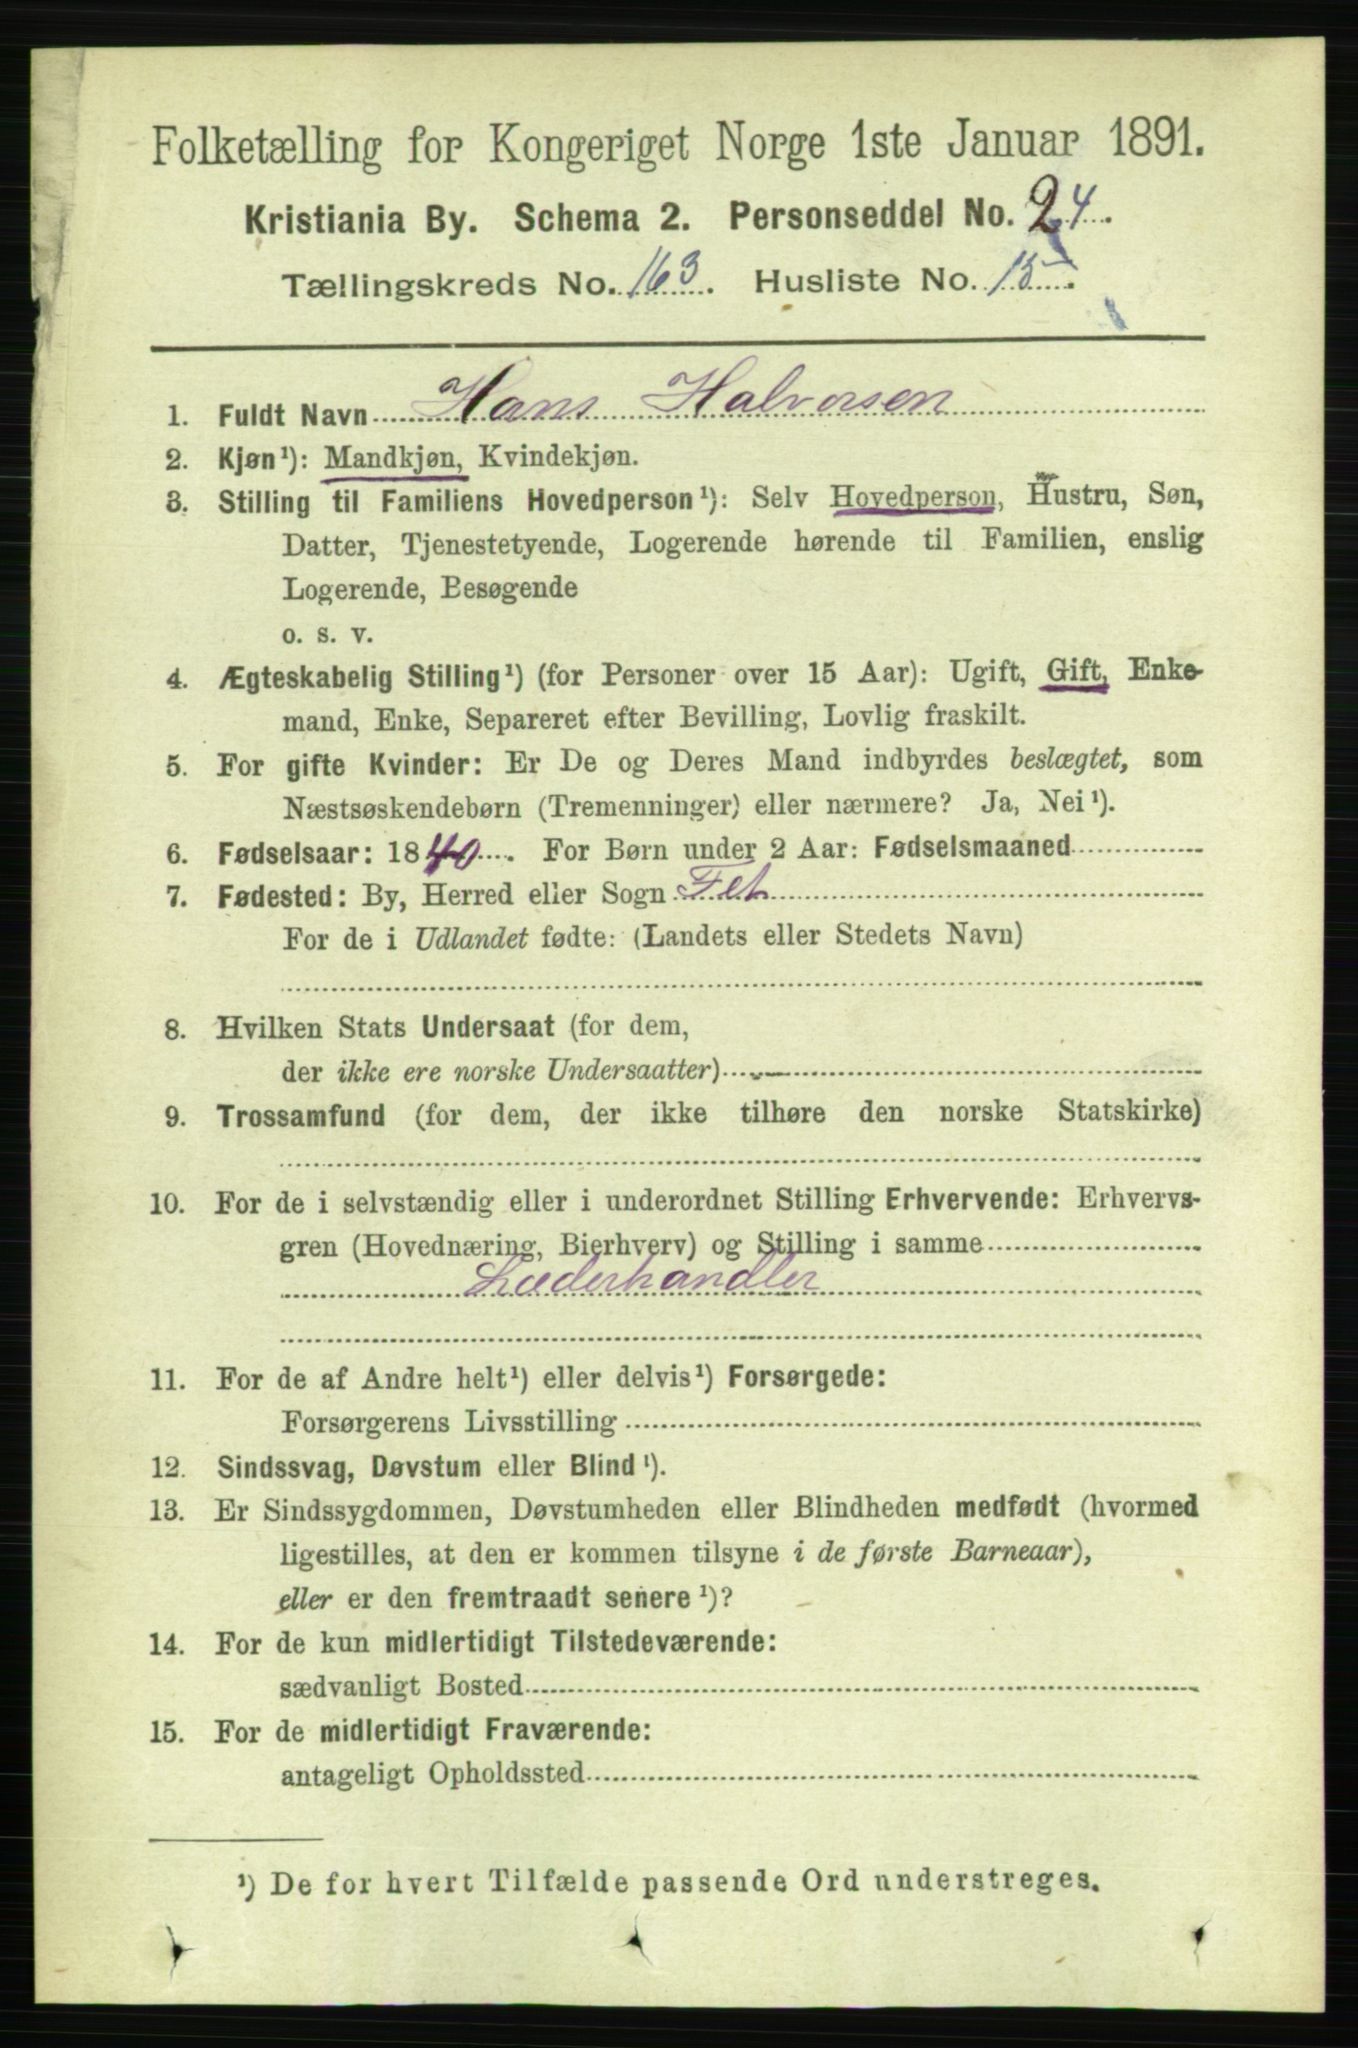 Folketælling for Kongeriget Norge 1ste Januar 1891.
Kristiania By. Schema 2. Personseddel No. 24.
Tællingskreds No. 163. Husliste No. 15.
1. Fuldt Navn Hans Halvorsen
2. Kjøn¹): Mandkjøn, Kvindekjøn.
3. Stilling til Familiens Hovedperson¹): Selv Hovedperson, Hustru, Søn,
Datter, Tjenestetyende, Logerende hørende til Familien, enslig
Logerende, Besøgende
o. s. v.
4. Ægteskabelig Stilling¹) (for Personer over 15 Aar): Ugift, Gift, Enke-
mand, Enke, Separeret efter Bevilling, Lovlig fraskilt.
5. For gifte Kvinder: Er De og Deres Mand indbyrdes beslægtet, som
Næstsøskendebørn (Tremenninger) eller nærmere? Ja, Nei¹).
6. Fødselsaar: 1840. For Børn under 2 Aar: Fødselsmaaned
7. Fødested: By, Herred eller Sogn Fet
For de i Udlandet fødte: (Landets eller Stedets Navn)
8. Hvilken Stats Undersaat (for dem,
der ikke ere norske Undersaatter)
9. Trossamfund (for dem, der ikke tilhøre den norske Statskirke)
10. For de i selvstændig eller i underordnet Stilling Erhvervende: Erhvervs-
gren (Hovednæring, Bierhverv) og Stilling i samme
Læderhandler
11. For de af Andre helt¹) eller delvis¹) Forsørgede:
Forsørgerens Livsstilling
12. Sindssvag, Døvstum eller Blind¹).
13. Er Sindssygdommen, Døvstumheden eller Blindheden medfødt (hvormed
ligestilles, at den er kommen tilsyne i de første Barneaar),
eller er den fremtraadt senere¹)?
14. For de kun midlertidigt Tilstedeværende:
sædvanligt Bosted
15. For de midlertidigt Fraværende:
antageligt Opholdssted
¹) De for hvert Tilfælde passende Ord understreges.